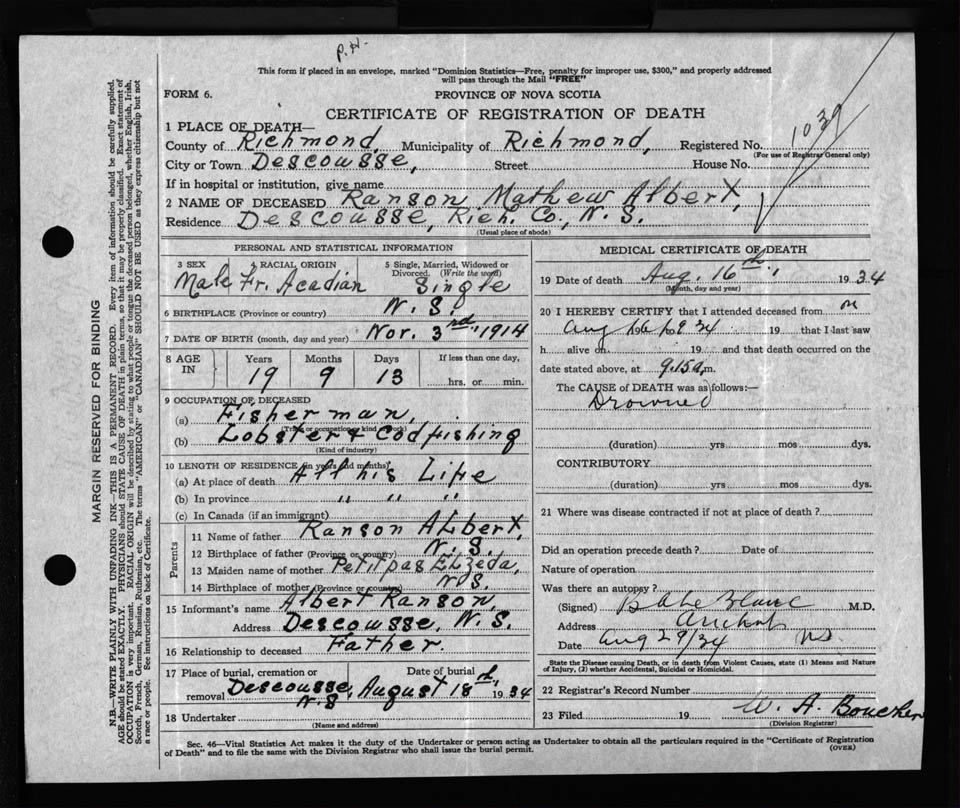 P.N.
This form if placed in an envelope, marked "Dominion Statistics—Free, penalty for improper use, $300," and properly addressed
will pass through the Mail "FREE"
FORM 6.
PROVINCE OF NOVA SCOTIA
CERTIFICATE OF REGISTRATION OF DEATH
1039
1 PLACE OF DEATH—
County of Richmond, Municipality of Richmond, Registered No.
(For use of Registrar General only)
City or Town Descousse, Street House No.
If in hospital or institution, give name
2 NAME OF DECEASED Ranson Mathew Albert,
Residence Descousse, Rich. Co., N. S.
(Usual place of abode)
PERSONAL AND STATISTICAL INFORMATION
3 SEX 4 RACIAL ORIGIN 5 Single, Married, Widowed or Divorced. (Write the word)
Male Fr. Acadian Single
6 BIRTHPLACE (Province or country) N. S.
7 DATE OF BIRTH (month, day and year) Nov. 3rd 1914
8 AGE IN Years Months Days If less than one day,
19 9 13 hrs. or min.
9 OCCUPATION OF DECEASED
(a) Fisherman,
(Trade or occupation or kind of work)
(b) Lobster & Codfishing
(Kind of industry)
10 LENGTH OF RESIDENCE (in years and months)
(a) At place of death All his Life
(b) In province " " "
(c) In Canada (if an immigrant)
Parents
11 Name of father Ranson Albert,
12 Birthplace of father (Province or country) N. S.
13 Maiden name of mother Petitpas Elzeda,
14 Birthplace of mother (Province or country) N S.
15 Informant's name Albert Ranson,
Address Descousse, N. S.
16 Relationship to deceased Father.
17 Place of burial, cremation or removal Date of burial
Descousse, N.S August 18th, 1934
18 Undertaker
(Name and address)
MEDICAL CERTIFICATE OF DEATH
19 Date of death Aug. 16th, 1934
(Month, day and year)
20 I HEREBY CERTIFY that I attended deceased from on
Aug 16 1934 19 that I last saw
h alive on 19 and that death occurred on
date stated above, at 9.15 a.m.
The CAUSE of DEATH was as follows:
Drowned
(duration) yrs mos dys.
CONTRIBUTORY
(duration) yrs mos dys.
21 Where was disease contracted if not at place of death?
Did an operation precede death? Date of
Nature of operation
Was there an autopsy?
(Signed) LeBlanc M.D.
Address Arichat
Date Aug 29/34 NS
State the Disease causing Death, or in death from Violent Causes, state (1) Means and Nature
of Injury, (2) whether Accidental, Suicidal or Homicidal.
22 Registrar's Record Number
23 Filed 19 W. A. Boucher
(Division Registrar)
Sec. 46—Vital Statistics Act makes it the duty of the Undertaker or person acting as Undertaker to obtain all the particulars required in the "Certificate of Registration
of Death" and to file the same with the Division Registrar who shall issue the burial permit.
(OVER)
MARGIN RESERVED FOR BINDING
N.B.—WRITE PLAINLY WITH UNFADING INK—THIS IS A PERMANENT RECORD. Every item of information should be carefully supplied.
AGE should be stated EXACTLY. PHYSICIANS should STATE CAUSE OF DEATH in plain terms, so that it may be properly classified. Exact statement of
OCCUPATION is very important. RACIAL ORIGIN will be described by stating to what people or tongue the deceased person belonged, whether English, Irish,
Scotch, French, German, Russian, Ruthenian, etc. The terms "AMERICAN" or "CANADIAN" SHOULD NOT BE USED as they express citizenship but not
a race or people. See instructions on back of Certificate.